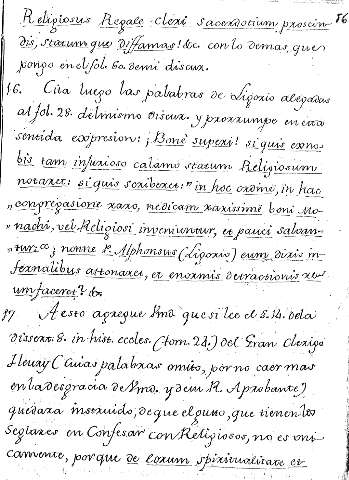 56
Religiosus Regale cleri sacerdotium proscin
dis, statumque diffamas! &c. con lo demas, que
pongo en el fol. 60. de mi discur.
16. Cita luego las palabras de Ligorio alegadas
al fol. 28. del mismo discur. y prorrumpe en esta
sentida expresion: ¡Boné superi! si quis exno-
bis tam injurioso calamo statum Religiosum
notaret: si quis scriberet: "in hoc ordine, in hac
„congregasione raro, ne dicam rarissimé boni Mo-
„nachi, vel Religiosi inveniuntur, et pauci salvan-
„tur: nonne P. Alphonsus (Ligorio) eum diris in-
fernalibus attonaret, et enormis detractionis re-
um faceret? &c.
17 A esto agregue Vmd. que si lee el §. 14. de la
dissert. 8. in hist. eccles. (tom. 24.) del Gran Clerigo
Fleury (cuias palabras omito, por no caer mas
en la desgracia de Vmd. y de su R. Aprobante)
quedara instruido, de que el gusto, que tienen los
Seglares en Confesar con Religiosos, no es uni
camente, porque de eorum spiritualitate et